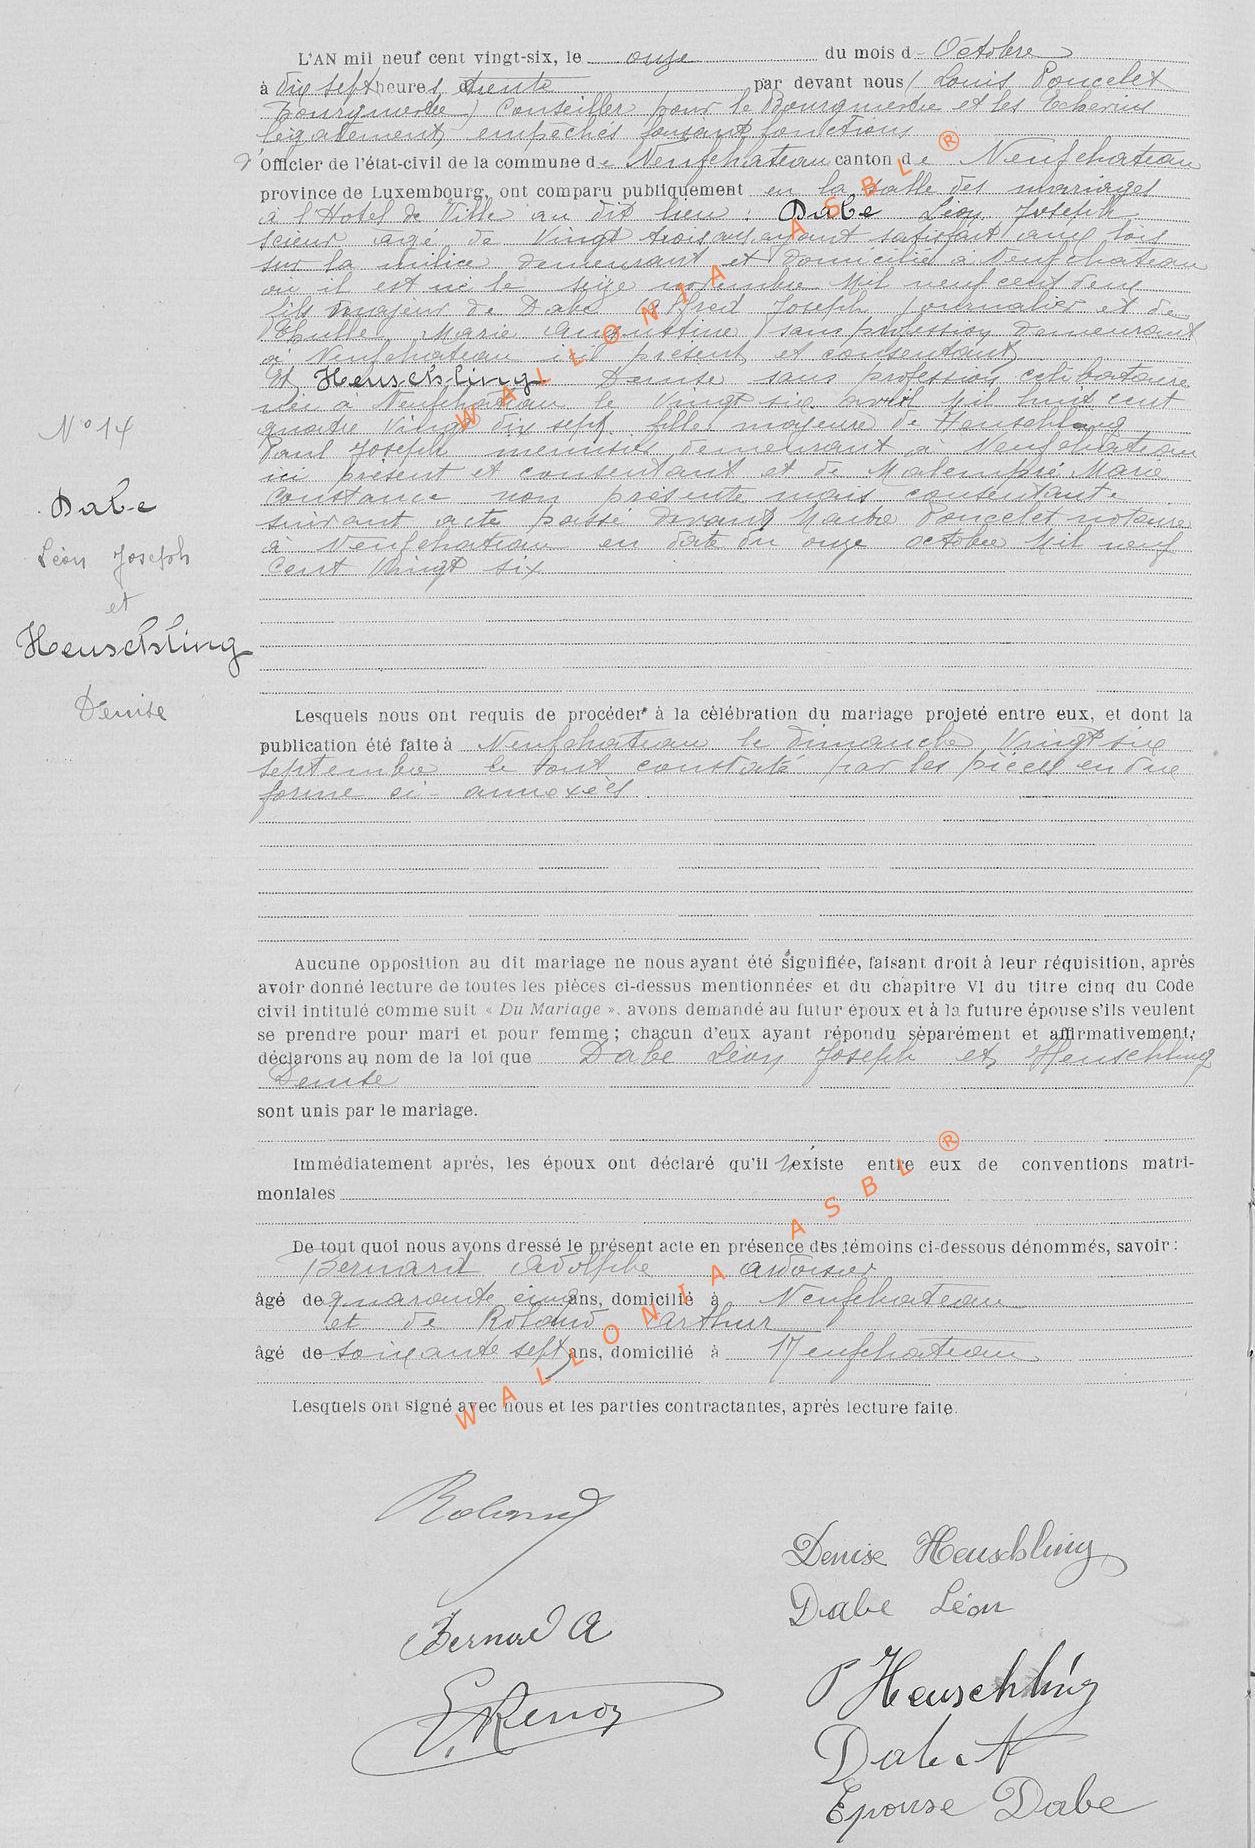 L'AN mil neuf cent vingt-six, le onze du mois d- Octobre
à dix sept heures trente par devant nous Louis Poncelet
Bourgmestre Conseiller pour le Bourgmestre et les Echevins
légalement empêchés faisant fonctions
d'Officier de l'état-civil de la commune de Neufchateau canton de Neufchateau
province de Luxembourg, ont comparu publiquement en la salle des mariages
à l'Hotel de Ville au dit lieu : Dabe Léon Joseph
scieur agé de Vingt trois ans ayant satisfait aux lois
sur la milice demeurant et domicilié à Neufchateau
ou il est né le seize novembre Mil neuf cent deux
fils majeur de Dabe Alfred Joseph journalier et de
Thulle Marie Augustine sans profession demeurant
à Neufchateau ici présent et consentant
Et Heuschling Denise sans profession celibataire
née à Neufchateau le Vingt six avril Mil huit cent
quatre Vingt dix sept fille majeure de Heuschling
Paul Joseph menuisier demeurant à Neufchateau
ici présent et consentant et de Malempré Marie
Constance non présente mais consentante
suivant acte passé devant Maitre Poncelet notaire
à Neufchateau en date du onze octobre Mil neuf
cent Vingt six
N° 14
Dabe
Léon Joseph
et
Heuschling
Denise
Lesquels nous ont requis de procéder à la célébration du mariage projeté entre eux, et dont la
publication été faite à Neufchateau le dimanche Vingt six
septembre le tout constaté par les pièces en due
forme ci-annexées
Aucune opposition au dit mariage ne nous ayant été signifiée, faisant droit à leur réquisition, après
avoir donné lecture de toutes les pièces ci-dessus mentionnées et du chapitre VI du titre cinq du Code
civil intitulé comme suit « Du Mariage », avons demandé au futur époux et à la future épouse s'ils veulent
se prendre pour mari et pour femme ; chacun d'eux ayant répondu séparément et affirmativement,
déclarons au nom de la loi que Dabe Léon Joseph et Heuschling
Denise
sont unis par le mariage.
Immédiatement après, les époux ont déclaré qu'il n'existe entre eux de conventions matri-
moniales
De tout quoi nous avons dressé le présent acte en présence des témoins ci-dessous dénommés, savoir :
Bernard Adolphe ardoisier
âgé de quarante cinq ans, domicilié à Neufchateau
et de Roland Arthur
âgé de soixante sept ans, domicilié à Neufchateau
Lesquels ont signé avec nous et les parties contractantes, après lecture faite.
Roland
Denise Heuschling
Dabe Léon
Bernard A
P Heuschling
Dabe A
Epouse Dabe
WALLONIA ASBL ®
WALLONIA ASBL ®